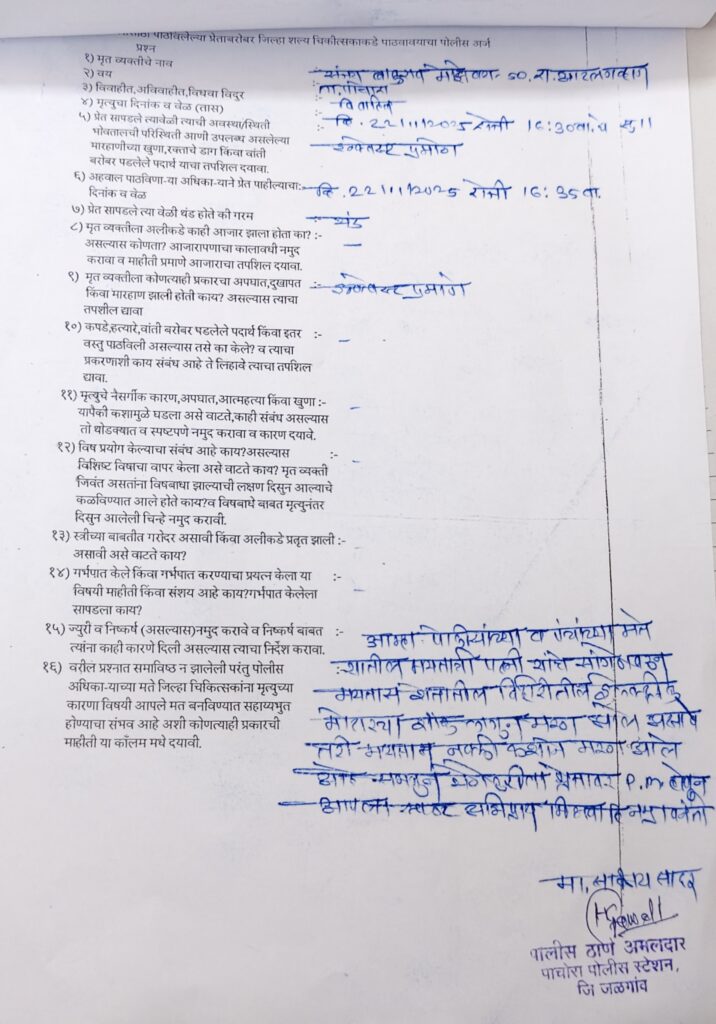 पाठविलेल्या प्रेताबरोबर जिल्हा शल्य चिकीत्सकाकडे पाठवावयाचा पोलीस अर्ज
प्रश्न
१) मृत व्यक्तीचे नाव
२) वय
५०, रा.
३) विवाहीत,अविवाहीत,विधवा विदुर
ता. पाचोरा
४) मृत्युचा दिनांक व वेळ (तास)
विवाहित
५) प्रेत सापडले त्यावेळी त्याची अवस्था/स्थिती
दि. 22/11/2025 रोजी 16:30 वा.
भोवतालची परिस्थिती आणी उपलब्ध असलेल्या
मारहाणीच्या खुणा,रक्ताचे डाग किंवा वांती
प्रमाणे
बरोबर पडलेले पदार्थ याचा तपशिल दयावा.
६) अहवाल पाठविणा-या अधिका-याने प्रेत पाहील्याचा:-
दि. 22/11/2025 रोजी 16:35 वा.
दिनांक व वेळ
७) प्रेत सापडले त्या वेळी थंड होते की गरम
थंड
८) मृत व्यक्तीला अलीकडे काही आजार झाला होता का? :-
असल्यास कोणता? आजारापणाचा कालावधी नमुद
करावा व माहीती प्रमाणे आजाराचा तपशिल दयावा.
९) मृत व्यक्तीला कोणत्याही प्रकारचा अपघात,दुखापत
प्रमाणे
किंवा मारहाण झाली होती काय? असल्यास त्याचा
तपशील द्यावा
१०) कपडे,हत्यारे,वांती बरोबर पडलेले पदार्थ किंवा इतर :-
वस्तु पाठविली असल्यास तसे का केले? व त्याचा
प्रकरणाशी काय संबंध आहे ते लिहावे त्याचा तपशिल
द्यावा.
११) मृत्युचे नैसर्गीक कारण,अपघात,आत्महत्या किंवा खुणा :-
यापैकी कशामुळे घडला असे वाटते,काही संबंध असल्यास
तो थोडक्यात व स्पष्टपणे नमुद करावा व कारण दयावे.
१२) विष प्रयोग केल्याचा संबंध आहे काय?असल्यास :-
विशिष्ट विषाचा वापर केला असे वाटते काय? मृत व्यक्ती
जिवंत असतांना विषबाधा झाल्याची लक्षण दिसुन आल्याचे
कळविण्यात आले होते काय?व विषबाधे बाबत मृत्युनंतर
दिसुन आलेली चिन्हे नमुद करावी.
१३) स्त्रीच्या बाबतीत गरोदर असावी किंवा अलीकडे प्रतृत झाली :-
असावी असे वाटते काय?
१४) गर्भपात केले किंवा गर्भपात करण्याचा प्रयत्न केला या :-
विषयी माहीती किंवा संशय आहे काय?गर्भपात केलेला
सापडला काय?
१५) ज्युरी व निष्कर्ष (असल्यास)नमुद करावे व निष्कर्ष बाबत :-
आम्हा पोलीसांच्या व पंचांच्या मते
त्यांनी काही कारणे दिली असल्यास त्याचा निर्देश करावा.
यातील मयताची पत्नी यांचे सांगणेवरुन
१६) वरील प्रश्नात समाविष्ठ न झालेली परंतु पोलीस
अधिका-याच्या मते जिल्हा चिकित्सकांना मृत्युच्या
मयतास शेतातील विहिरीतील
कारणा विषयी आपले मत बनविण्यात सहाय्यभुत
मोटारचा शॉक लागुन मरण
होण्याचा संभव आहे अशी कोणत्याही प्रकारची
तरी मयताम नक्की कशाने मरण झाले
माहीती या कॉलम मधे दयावी.
आहे P.M होवून
आपला अभिप्राय
मा. सादर
पोलीस ठाणे अमलदार
पाचोरा पोलीस स्टेशन,
जि जळगांव